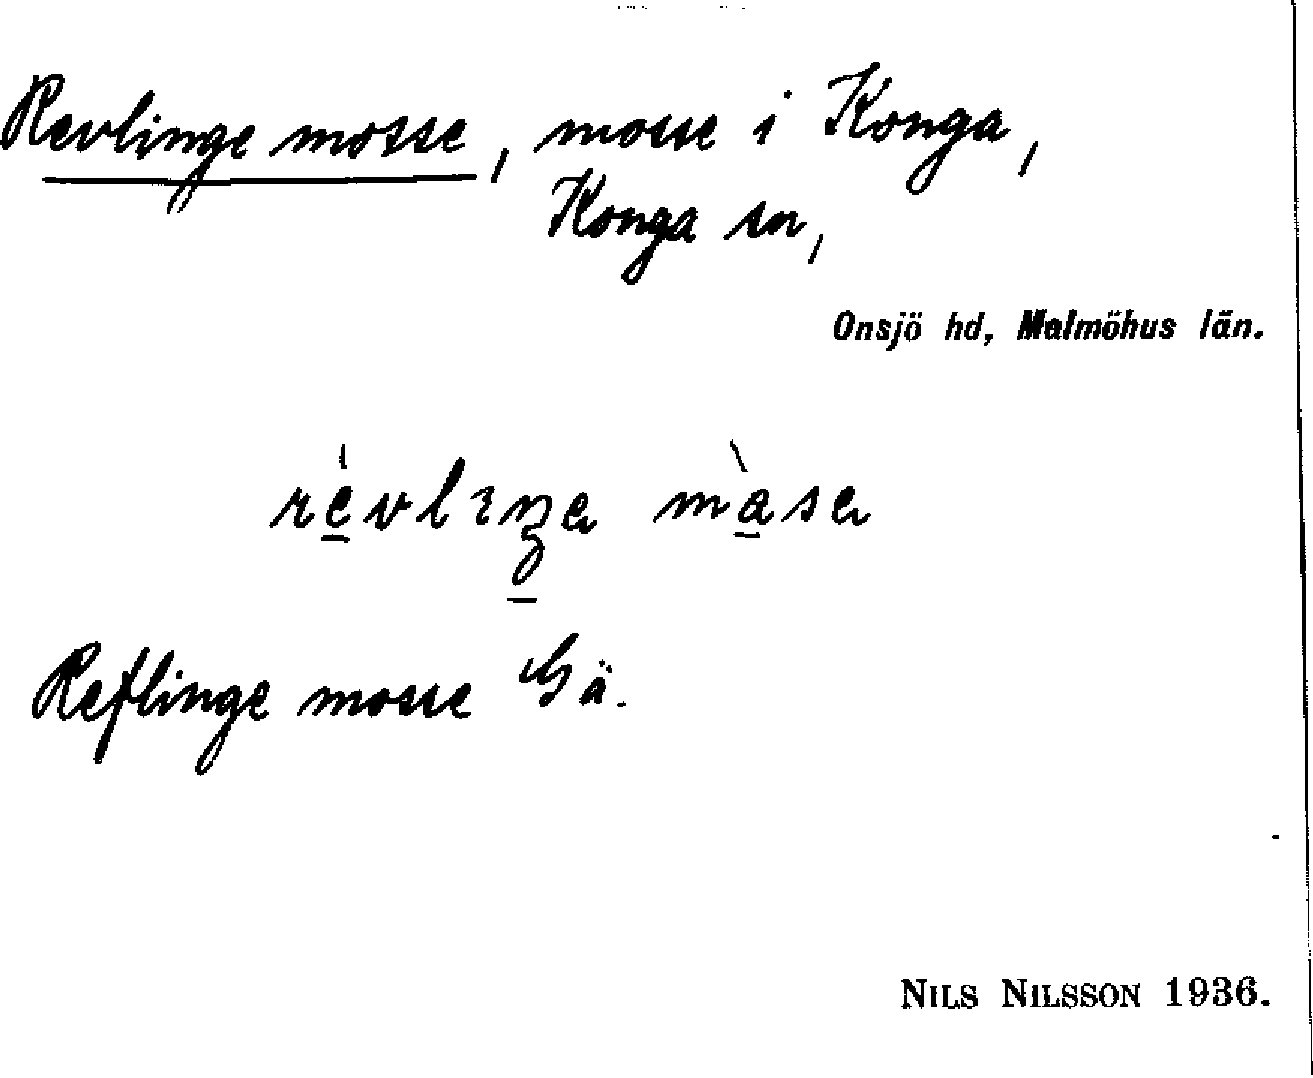 Revlinge mosse, mosse i Konga,
Konga sn,
Onsjö hd, Malmöhus län.
Reflinge mosse Gä.
NILS NILSSON 1936.